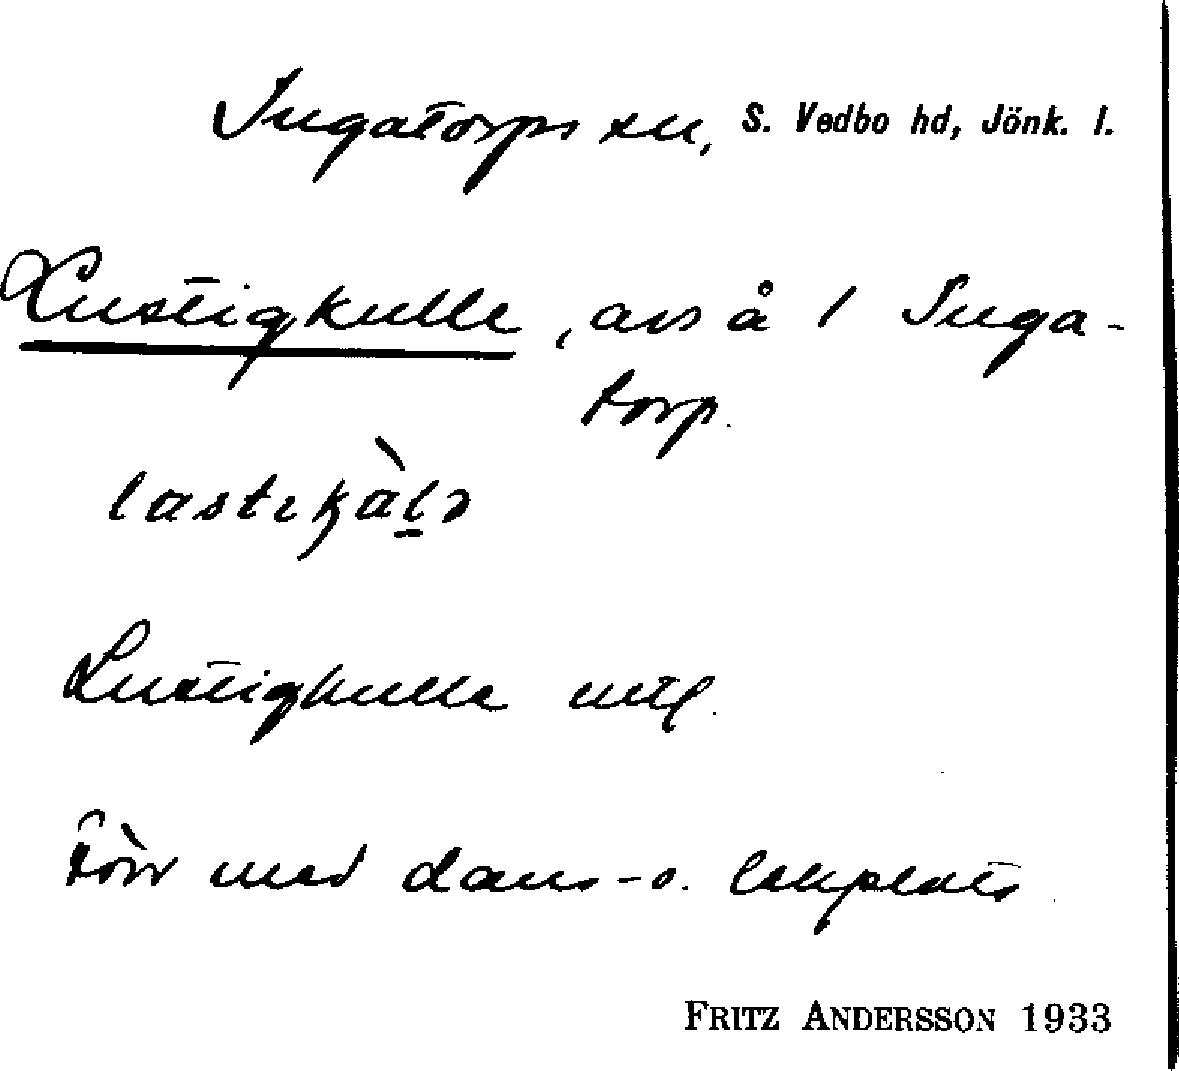 Ingatorps sn, S. Vedbo hd, Jönk. l.
Lustigkulle, avs å 1 Inga-
torp.
Lustigkulle uttl.
Förr med dans- o. lekplats
FRITZ ANDERSSON 1933